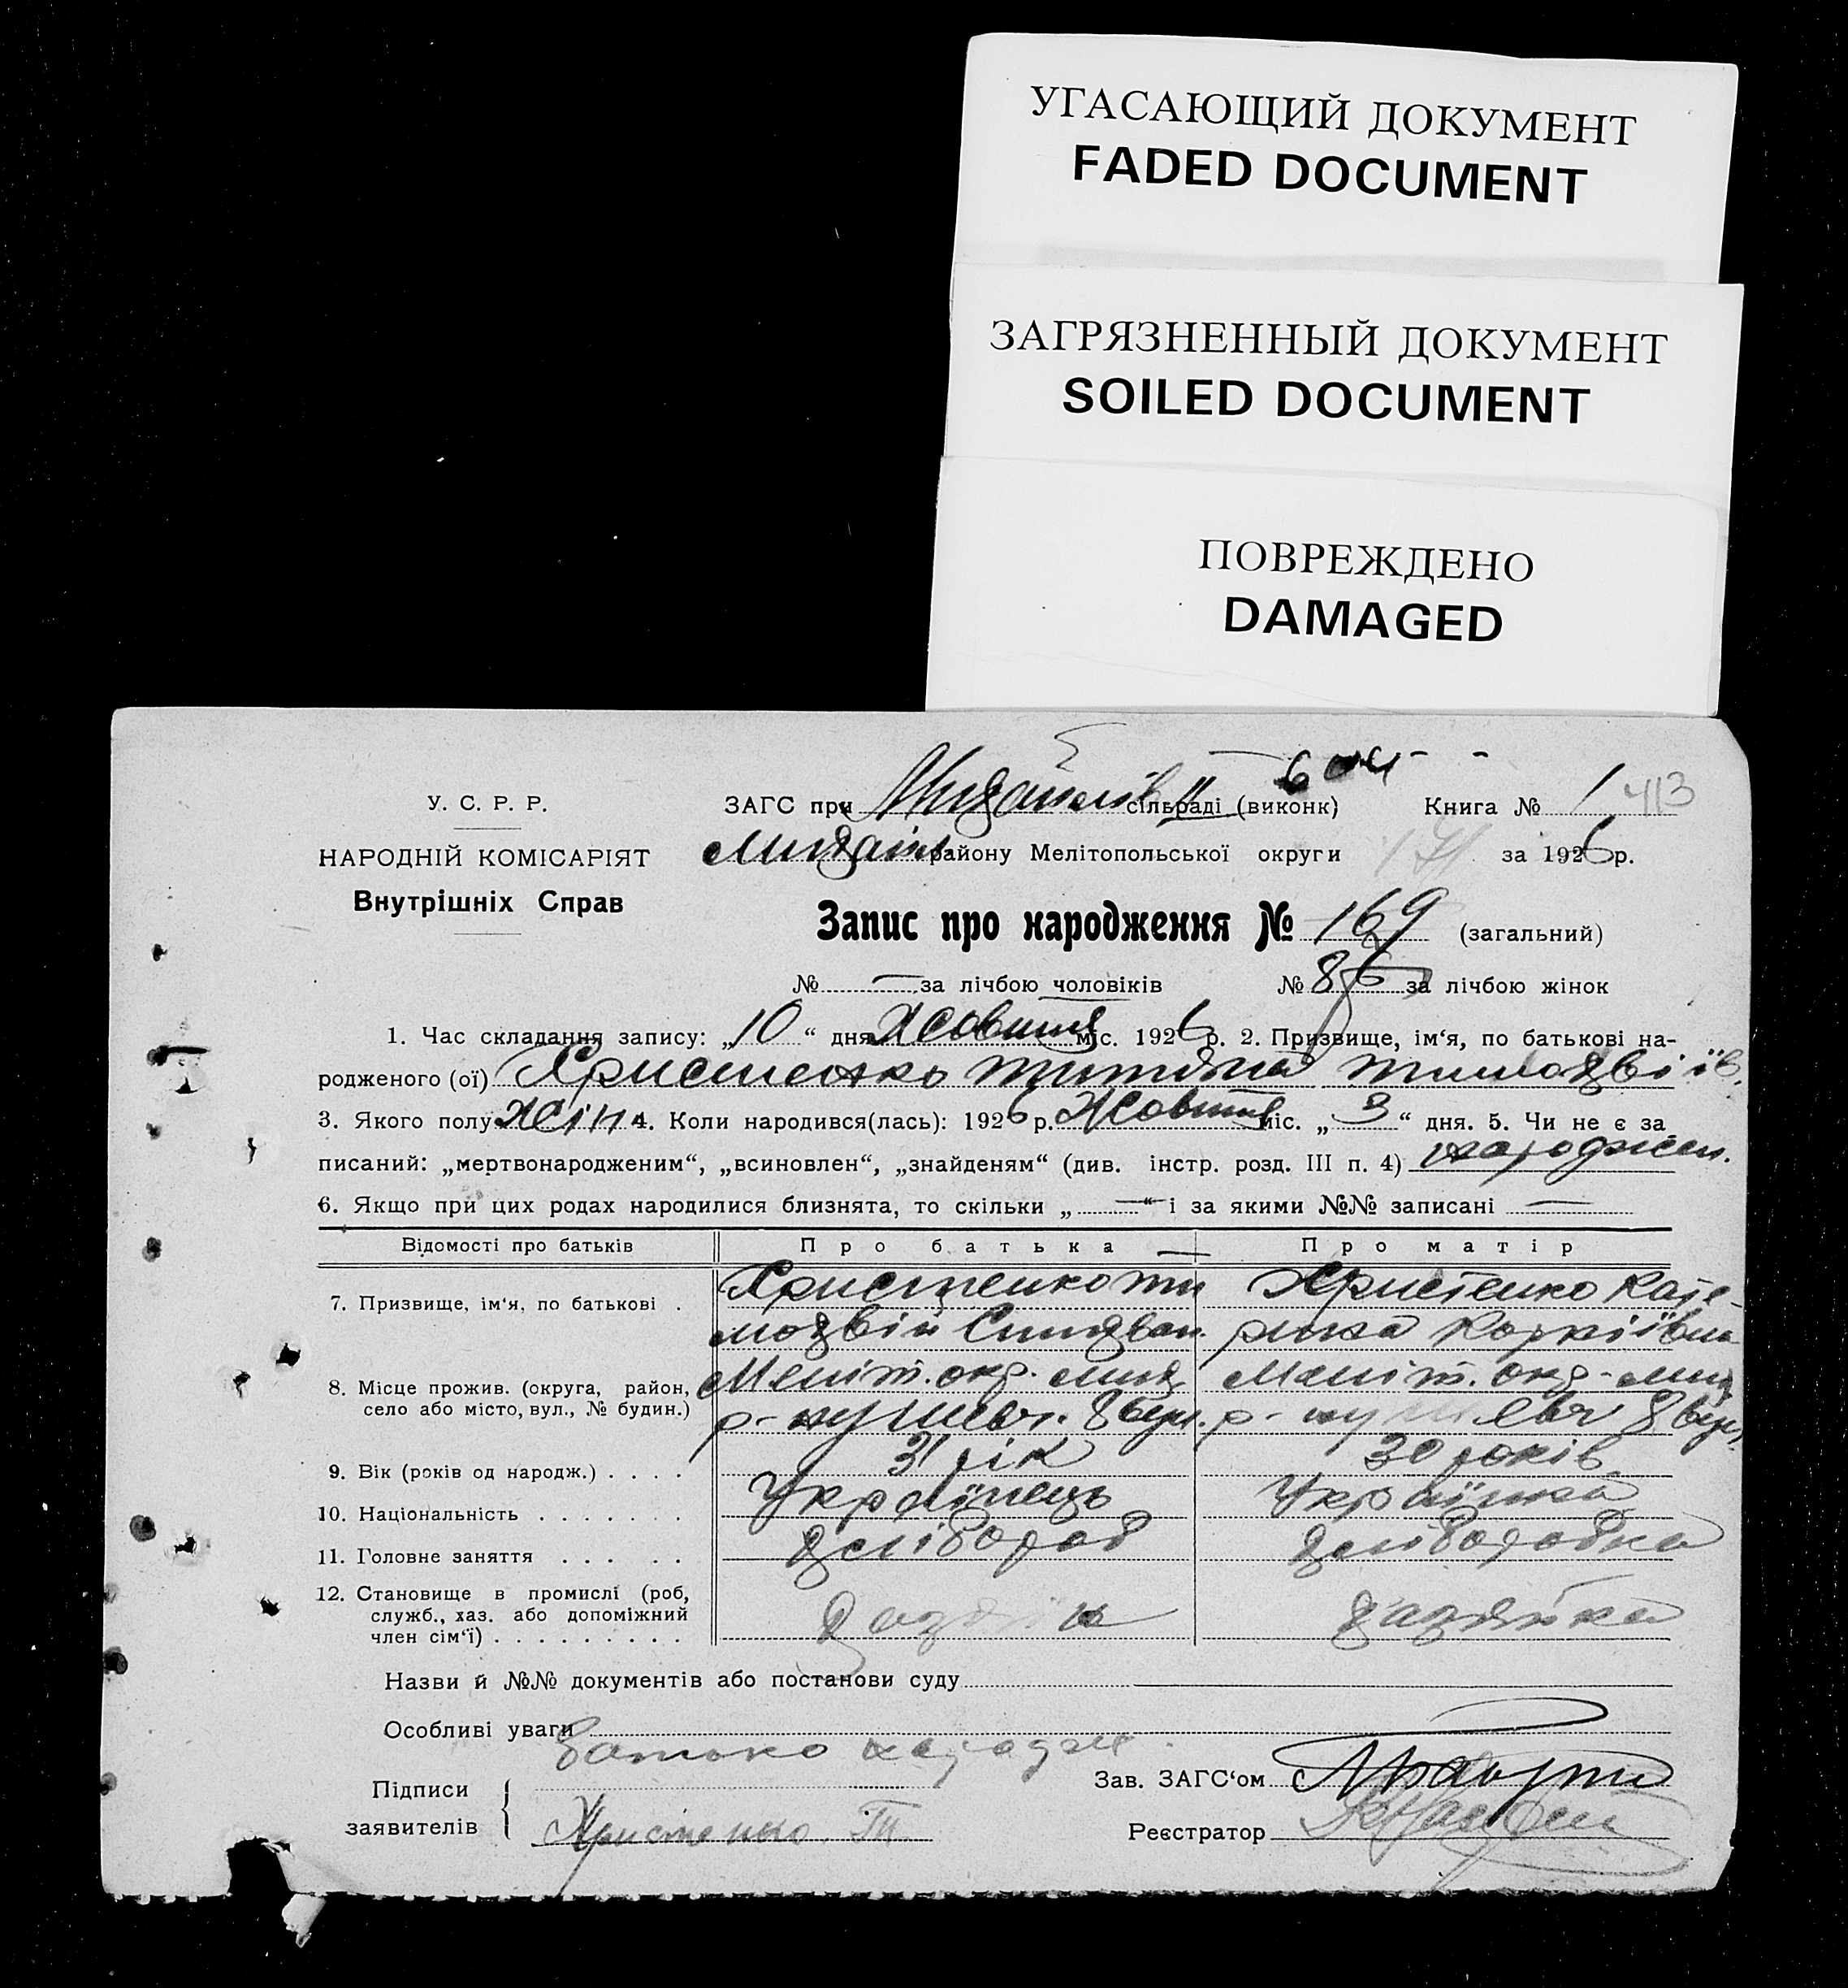 УГАСАЮЩИЙ ДОКУМЕНТ
FADED DOCUMENT
ЗАГРЯЗНЕННЫЙ ДОКУМЕНТ
SOILED DOCUMENT
ПОВРЕЖДЕНО
DAMAGED
У. С. Р. Р.
НАРОДНІЙ КОМІСАРІЯТ
Внутрішніх Справ
ЗАГС при Михайлів сільраді (виконк) Книга № 1 413
Михайл району Мелітопольської округи 171 за 1926 р.
Запис про народження № 169 (загальний)
№ — за лічбою чоловіків № 86 за лічбою жінок
1. Час складання запису: „10“ дня Жовтня міс. 1926 р. 2. Призвище, ім‘я, по батькові на-
родженого (ої) Христенко Тимохвіїв.
3. Якого полу жін 4. Коли народився(лась): 1926 р. Жовтня міс. „3“ дня. 5. Чи не є за
писаний: „мертвонародженим“, „всиновлен“, „знайденям“ (див. інстр. розд. III п. 4) народжен.
6. Якщо при цих родах народилися близнята, то скільки „—“ і за якими №№ записані —
Відомості про батьків Про батька Про матір
7. Призвище, ім‘я, по батькові . Христенко Ти Христенко Кате-
мохвій рина
8. Місце прожив. (округа, район, Меліт. окр. Мих Меліт. окр. Мих
село або місто, вул., № будин.)
9. Вік (років од народж.) . . . . 31 рік 30 років
10. Національність . . . . . . . Українець Українка
11. Головне заняття . . . . . хлібороб хліборобка
12. Становище в промислі (роб,
служб., хаз. або допоміжний хазяїн хазяйка
член сім‘ї) . . . . . . . . .
Назви й №№ документів або постанови суду
Особливі уваги
батько
Підписи
заявителів Христенко Т
Зав. ЗАГС‘ом
Реєстратор